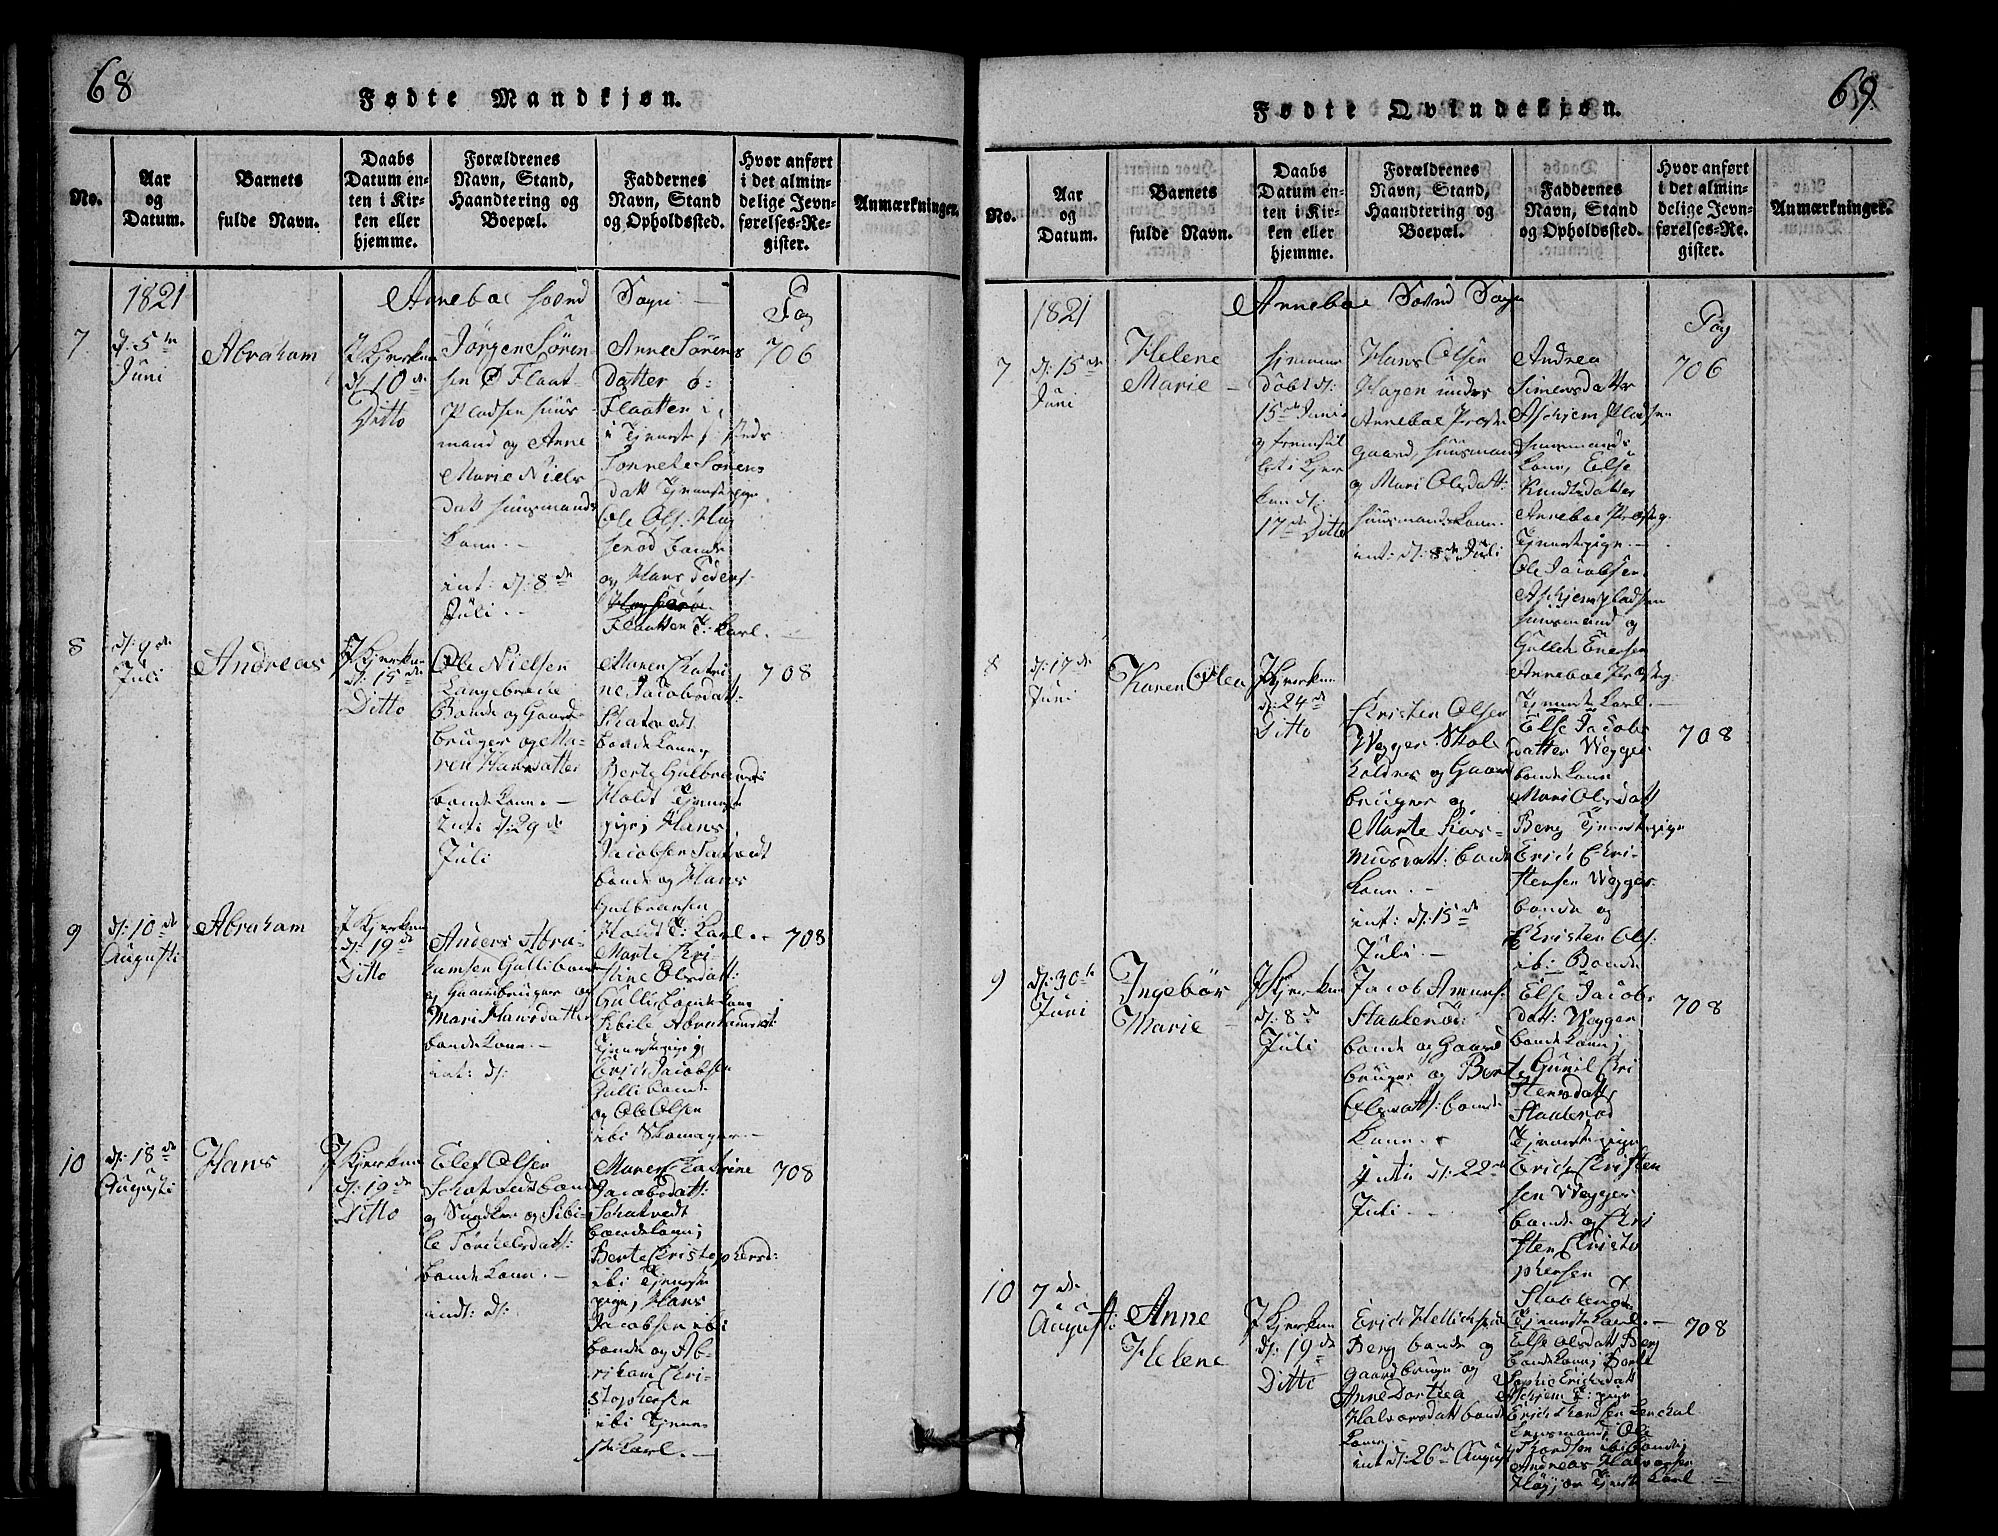 68
Fødte Mandkjøn.
No.
Aar
og
Datum.
Barnets
fulde Navn.
Daabs
Datum en-
ten i Kir-
ken eller
hjemme.
Forældrenes
Navn, Stand,
Haandtering og
Boepæl.
Faddernes
Navn, Stand
og Opholdssted.
Hvor anført
i det almin-
delige Jevn-
førelses-Re-
gister.
Anmærkninger.
1821
Anneboe Sogn
Pag
7
d: 5te
Juni
Abraham
J Kjerken
d: 10de
Ditto
Jørgen Søren-
sen
Pladsen huus
mand og Anne
Marie Niels
datt huusmands
kone.
int: d: 8de
Juli.
Anne Sørens
Datter
Flaatten
Tonnete Sørens
datt Tjenestepige
Ole Ols:
bonde
og Hans Peders:
Flaatten T: karl.
706
8
d: 9de
Juli
Andreas
J Kjerken
d: 15de
Ditto
Ole Nielsen
Langebrekke
Bonde og Gaard
bruger og Ma-
ren Hansdatter
bondekone.
Int: d: 29de
Juli
Maren Katri
ne Jacobsdatt:
Skatvedt
bondekone,
Berte Gulbrands:
Holdt Tjeneste
pige, Hans
Jacobsen Skatvedt
bonde og Hans
Gulbransen
Holdt T: karl.
708
9
d: 10de
Augusti
Abraham
J Kjerken
d: 19de
Ditto
Anders Abra-
hamsen Gulli bonde
og Gaardbruger og
Mari Hansdatter
bondekone.
int: d:
Marte Kri-
stine Olsdatt:
Gulli bondekone
Sibile Abrahamsdatt:
Tjenestepige
Erich Jacobsen
Gulli bonde
og Ole Olsen
ibi Skomager.
708
10
d: 18de
Augusti
Hans
J Kjerken
d: 19de
Ditto
Elef Olsen
Skatvedt bonde
og Snedker og Sibi-
le Torkelsdatt:
bondekone.
indt: d:
Maren Katrine
Jacobsdatt:
Skatvedt
bondekone;
Berte Christophersd:
ibi Tjeneste
pige, Hans
Jacobsen ibi
bonde og Ab-
raham Chri-
stophersen
ibi Tjenes-
tekarl.
708
69
Fødte Qvindekjøn.
No.
Aar
og
Datum.
Barnets
fulde Navn.
Daabs
Datum en-
ten i Kir-
ken eller
hjemme.
Forældrenes
Navn, Stand,
Haandtering og
Boepæl.
Faddernes
Navn, Stand
og Opholdssted.
Hvor anført
i det almin-
delige Jevn-
førelses-Re-
gister.
Anmærkninger.
1821
Anneboe Sogn
Pag
7
d: 15de
Juni
Helene
Marie
hjemme
døbt d:
15de Juni
og fremstil
let i Kjer
ken d:
17de Ditto
Hans Olsen
Hagen under
Anneboe Præste
gaard, huusmand
og Mari Olsdatt:
huusmandskone.
int: d: 8de Juli
Andrea
Simensdatter
Askjem pladsen
huusmands
kone, Else
Knudtsdatter
Anneboe Præstg.
Tjenestepige.
Ole Jacobsen
Askjem pladsen
huusmand og
Gullek Enersen
Anneboe Præstg.
Tjenestekarl.
706
8
d: 17de
Juni
Karen Olea
J Kjerken
d: 24de
Ditto
Kristen Olsen
Wegger Skole
holder og Gaard
bruger og
Marte Ras-
musdatt: bonde
kone.
int: d: 15de
Juli.
Else Jacobs
datter Wegger
bondekone
Mari Olsdatt
Berg Tjenestepige
Erich Chri-
stensen Wegger
bonde og
Christen Ols:
ibi Bonde
708
9
d: 30te
Juni
Ingebor
Marie
J Kjerken
d: 8de
Juli
Jacob Amunds:
Staalerød
bonde og Gaard
bruger og Berte
Olsdatt: bonde
kone.
Int: d: 22de
Juli.
Else Jacobs
datt: Wegger
bondekone;
Gunil Kri
stensdatt,
Staalerød
Tjenestepige
Erich Kristen
sen Wegger
bonde og Kri
sten Christo
phersen
Staalerød
Tjenestekarl.
708
10
7de
August:
Anne
Helene
J Kjerken
d: 19de
Ditto
Erich Hellichsen
Berg bonde og
gaardbruger og
Anne Dorthea
Halvorsdatt bonde
kone
int d: 26de August
Else Olsdatt Berg
bondekone; Berte
Sophie Erichsdatt
Askjem T: pige
huusmand; Ole
ibi bonde;
Andreas Halvorsen
Tjenestekarl
708